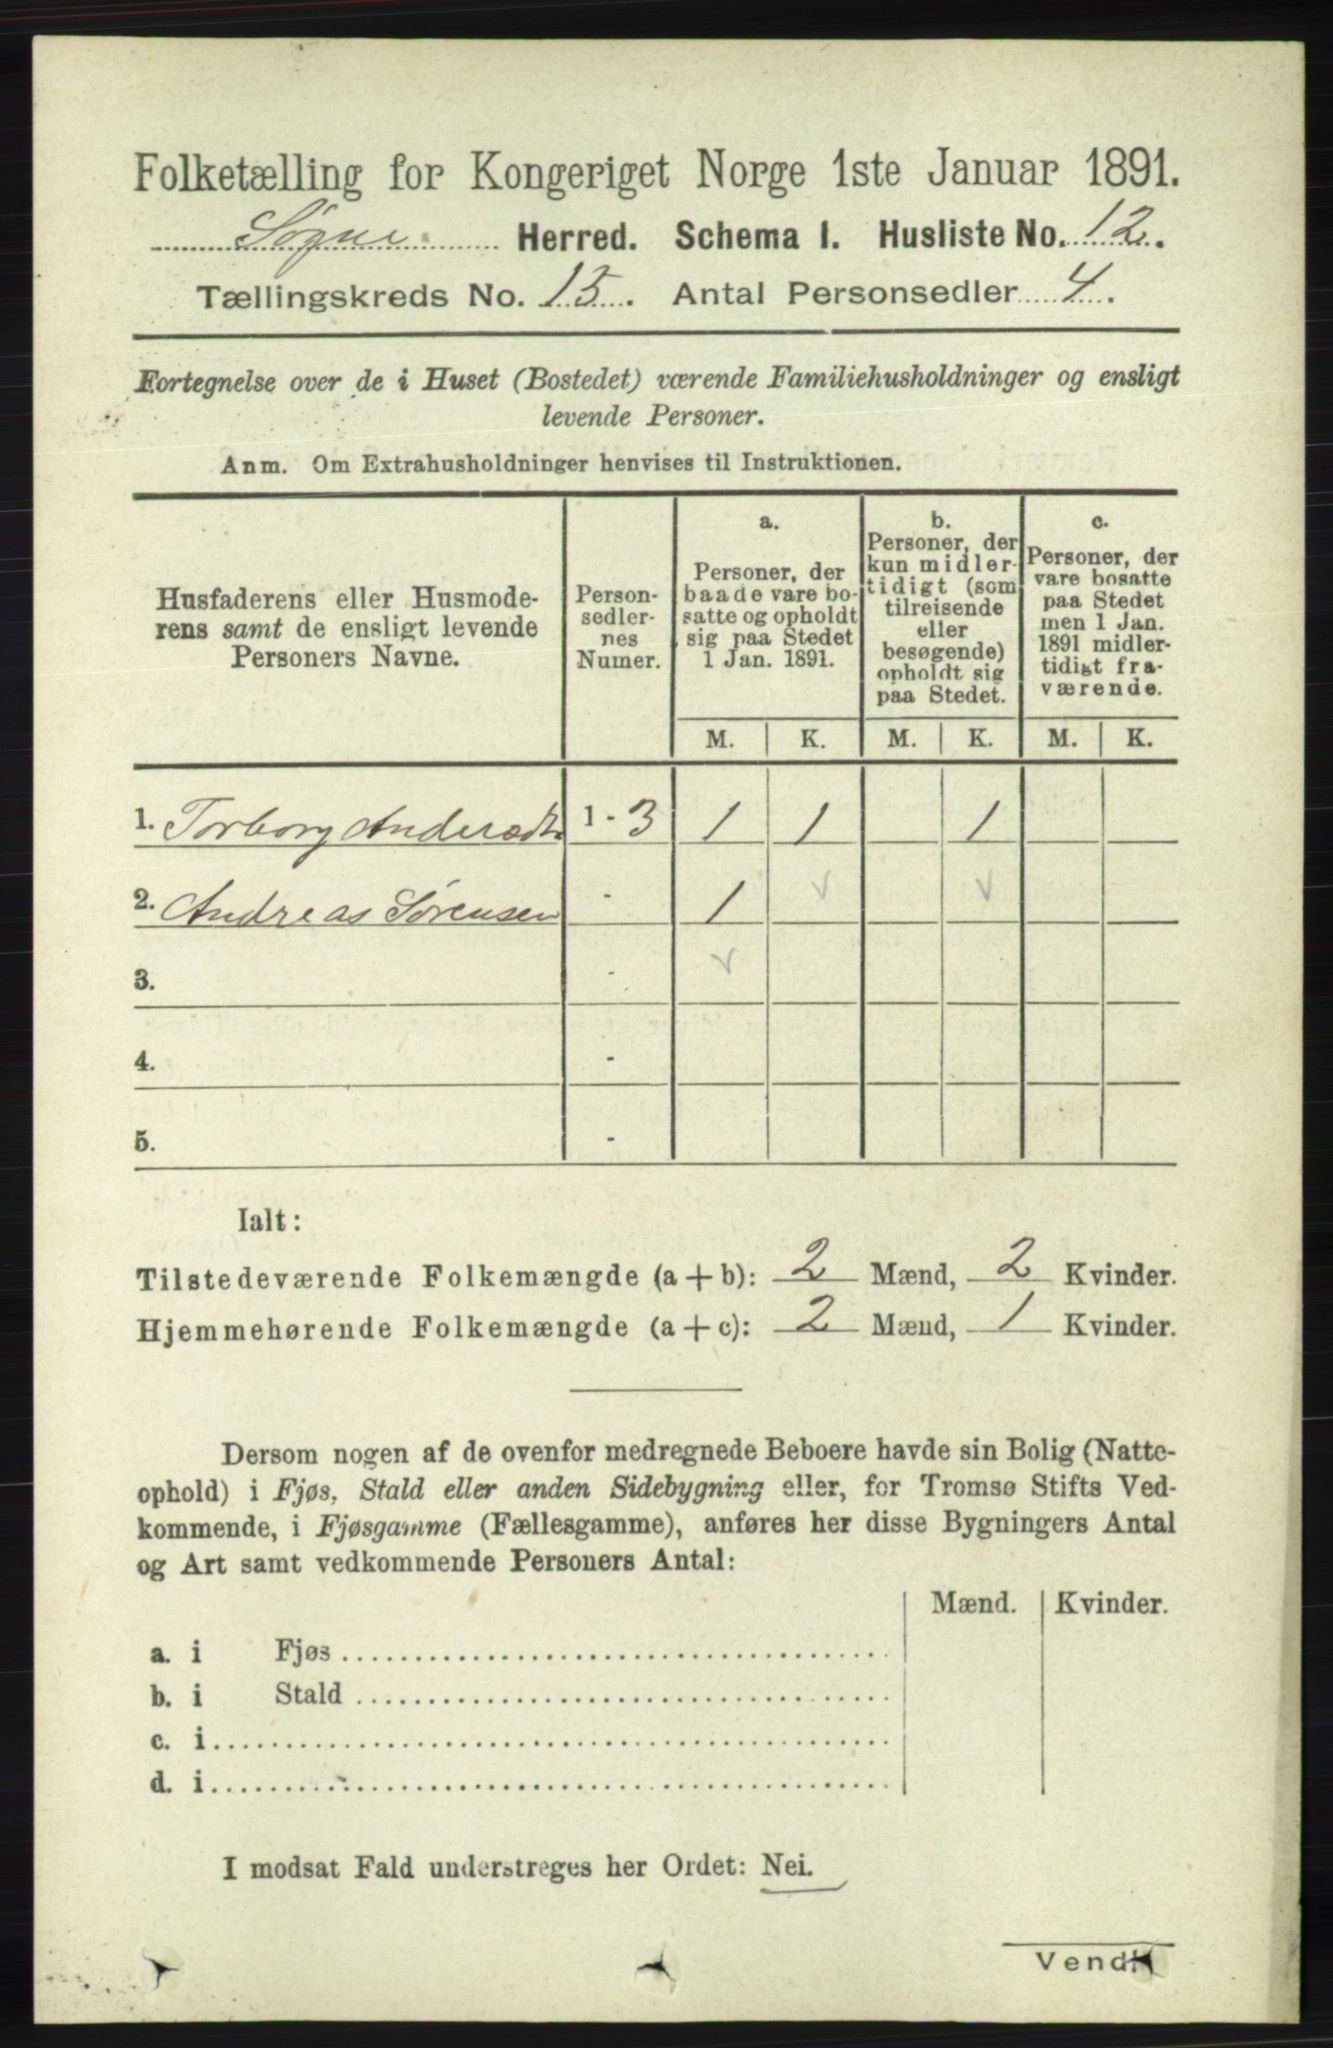 Folketælling for Kongeriget Norge 1ste Januar 1891.
Søgne Herred. Schema 1. Husliste No. 12.
Tællingskreds No. 15. Antal Personsedler 4.
Fortegnelse over de i Huset (Bostedet) værende Familiehusholdninger og ensligt
levende Personer.
Anm. Om Extrahusholdninger henvises til Instruktionen.
Husfaderens eller Husmode-
rens samt de ensligt levende
Personers Navne.
Person-
sedler-
nes
Numer.
a.
Personer, der
baade vare bo-
satte og opholdt
sig paa Stedet
1 Jan. 1891.
b.
Personer, der
kun midler-
tidigt (som
tilreisende
eller
besøgende)
opholdt sig
paa Stedet.
c.
Personer, der
vare bosatte
paa Stedet
men 1 Jan.
1891 midler-
tidigt fra-
værende.
M. K. M. K. M. K.
1. Torborg Andersdtr 1 - 3 1 1 1
2. Andreas Sørensen - 1 v v
3. - v
4. -
5. -
Ialt:
Tilstedeværende Folkemængde (a + b): 2 Mænd, 2 Kvinder.
Hjemmehørende Folkemængde (a + c): 2 Mænd, 1 Kvinder.
Dersom nogen af de ovenfor medregnede Beboere havde sin Bolig (Natte-
ophold) i Fjøs, Stald eller anden Sidebygning eller, for Tromsø Stifts Ved-
kommende, i Fjøsgamme (Fællesgamme), anføres her disse Bygningers Antal
og Art samt vedkommende Personers Antal:
Mænd. Kvinder.
a. i Fjøs
b. i Stald
c. i
d. i
I modsat Fald understreges her Ordet: Nei.
Vend!